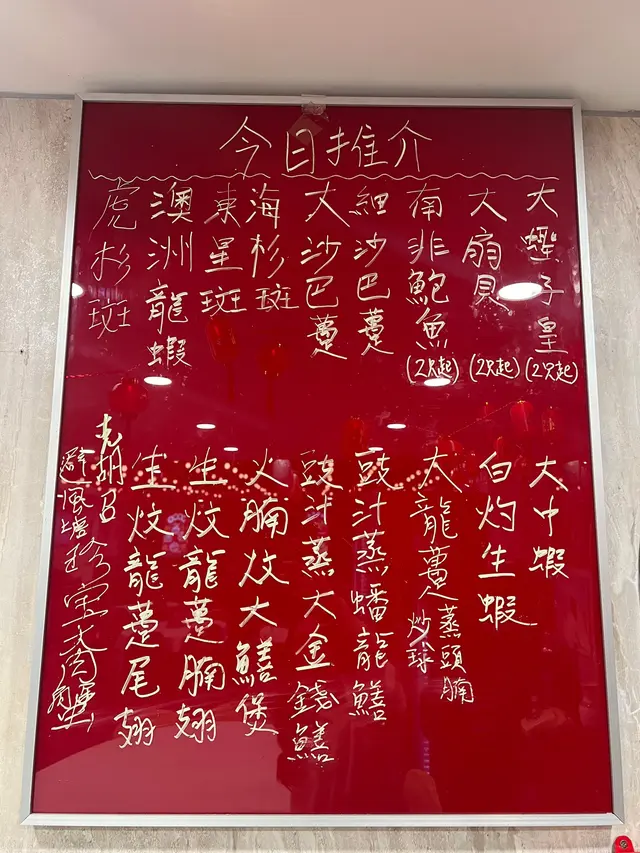 今日推介
大蟶子皇(2只起)
大扇貝(2只起)
南非鮑魚(2只起)
細沙巴躉
大沙巴躉
海杉斑
東星斑
澳洲龍蝦
虎杉斑
大中蝦
白灼生蝦
大龍躉蒸頭腩炒球
豉汁蒸蟠龍鱔
豉汁蒸大金錢鱔
火腩炆大鱔煲
生炆龍躉腩翅
生炆龍躉尾翅
避風塘珍宝大肉